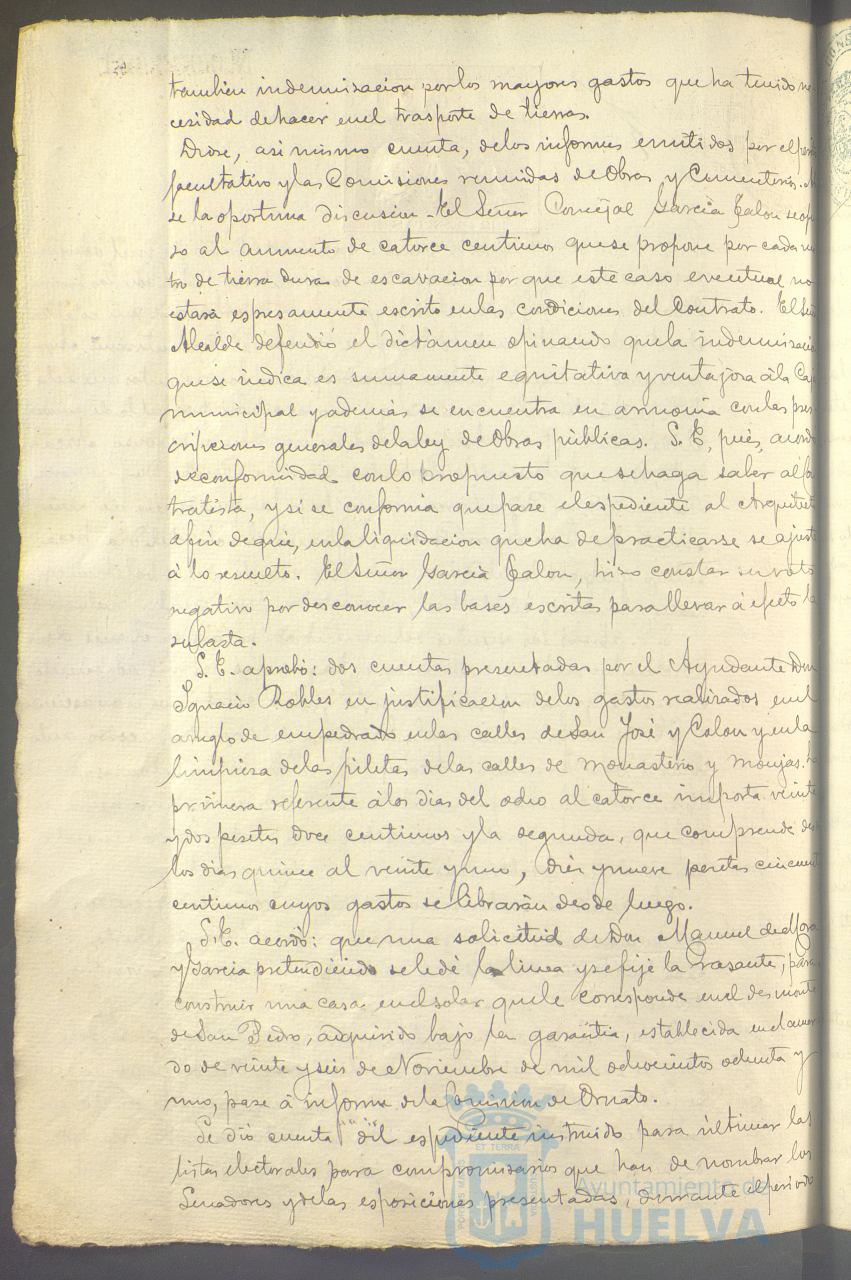 tambien indemnizacion por los mayores gastos que ha tenido ne
cesidad de hacer en el trasporte de tierras.
Diose, asi mismo cuenta, de los informes emitidos por el perito
facultativo y las Comisiones reunidas de Obras y Cementerios.
se la oportuna discusion. El Señor Concejal Garcia Jalon se opu
so al aumento de catorce centimos que se propone por cada me
tro de tierra dura de escavacion por que este caso eventual no
estara espresamente escrito en las condiciones del Contrato. El Señor
Alcalde defendió el dictámen opinando que la indemnizacion
que se indica es sumamente equitativa y ventajosa á la Caja
municipal y además se encuentra en armonia con las pres
cripciones generales de la ley de Obras públicas. S. E, pués, acordó
de conformidad con lo propuesto que se haga saber al Con
tratista, y si se conforma que pase el espediente al Arquitecto
a fin de que, en la liquidacion que ha de practicarse se ajuste
á lo resuelto. El Señor Garcia Jalon, hizo constar su voto
negativo por desconocer las bases escritas para llevar á efecto la
subasta.
S. E. aprobó: dos cuentas presentadas por el Ayudante Don
Ignacio Robles en justificacion de los gastos realizados en el
arreglo de empedrado en las calles de San José y Colon y en la
limpieza de las piletas de las calles de Monasterio y Monjas. La
primera referente á los dias del ocho al catorce importa veinte
y dos pesetas doce centimos y la segunda, que comprende des
los dias quince al veinte y uno, diez y nueve pesetas cincuenta
centimos cuyos gastos se librarán desde luego.
S. E. acordó: que una solicitud de Don Manuel de Mora
y Garcia pretendiendo se le dé la linea y se fije la rasante, para
construir una casa en el solar que le corresponde en el desmonte
de San Pedro, adquirido bajo la garantia, establecida en el acuer
do de veinte y seis de Noviembre de mil ochocientos ochenta y
uno, pase á informe de la Comision de Ornato.
Se dió cuenta del espediente instruido para últimar las
listas electorales para compromisarios que han de nombrar los
Senadores y de las esposiciones presentadas, durante el periodo
Ayuntamiento de
HUELVA